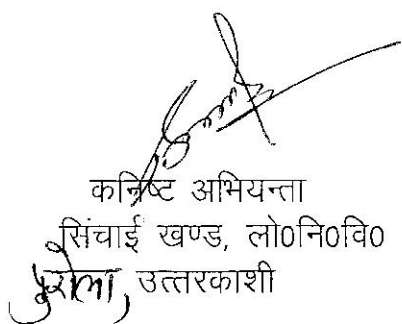 कनिष्ट अभियन्ता
सिंचाई खण्ड, लो0नि0वि0
पुरोला, उत्तरकाशी